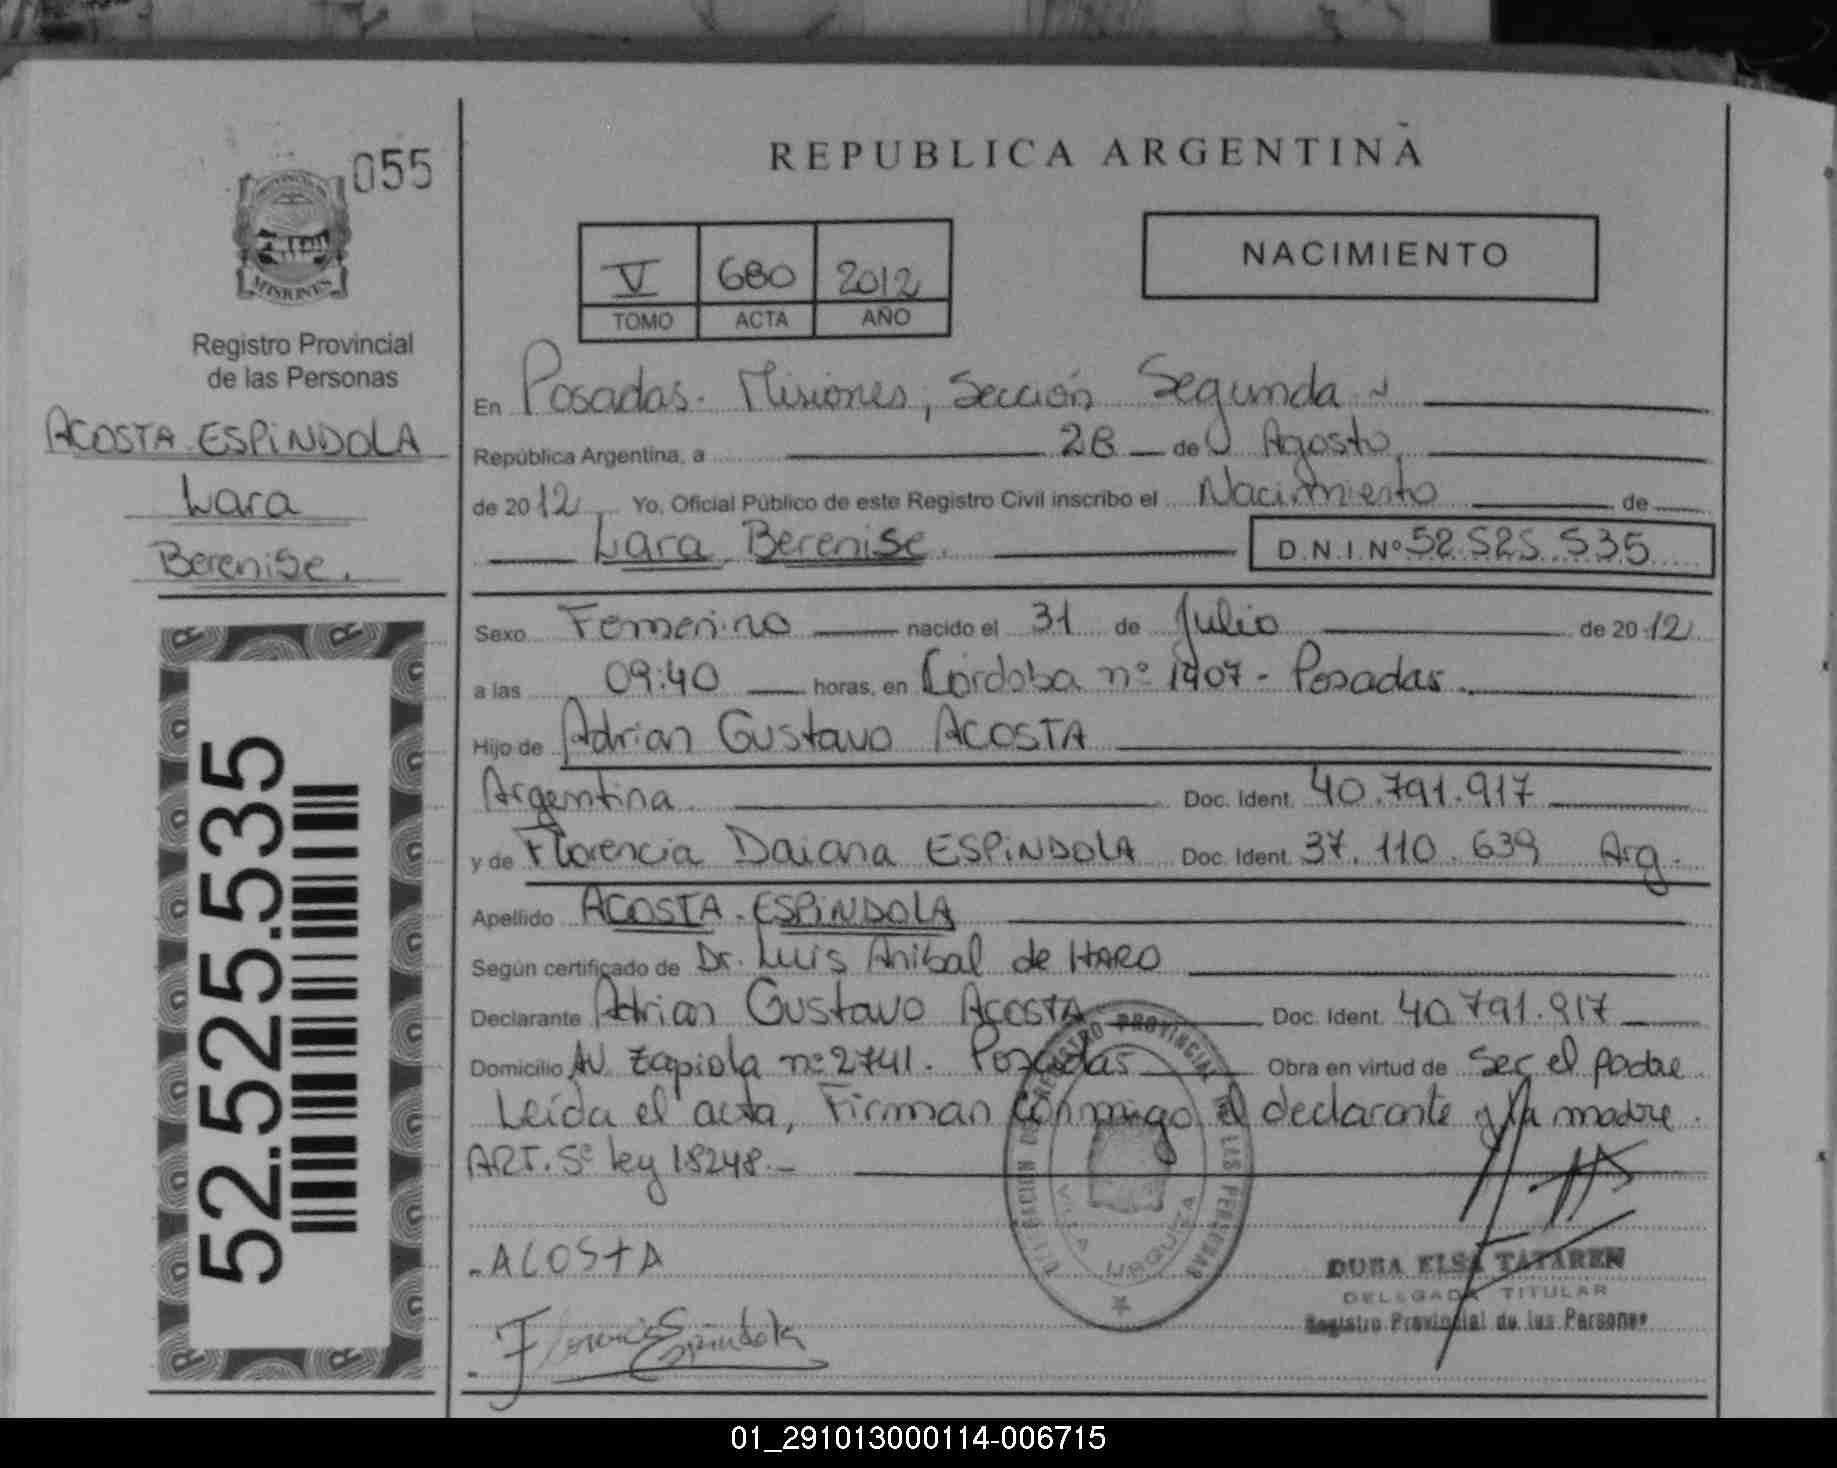 055
MISIONES
Registro Provincial
de las Personas
ACOSTA ESPiNDOLA
Lara
Berenise.
52.525.535
REPUBLICA ARGENTINA
V 680 2012
TOMO ACTA AÑO
NACIMIENTO
En Posadas. Misiones, Sección Segunda
República Argentina, a 28 de Agosto,
de 2012 Yo, Oficial Público de este Registro Civil inscribo el Nacimiento de
Lara Berenise. D.N.I.Nº 52.525.535
Sexo Femenino nacido el 31 de Julio de 2012
a las 09:40 horas, en Córdoba nº 1907- Posadas.
Hijo de Adrian Gustavo ACOSTA
Argentina Doc. Ident. 40.791.917
y de Florencia Daiana ESPiNDOLA Doc. Ident. 37.110.639 Arg.
Apellido ACOSTA-ESPiNDOLA
Según certificado de Dr. Luis Anibal de HARO
Declarante Adrian Gustavo ACOSTA Doc. Ident. 40.791.917
Domicilio AV. Zapiola nº 2741. Posadas Obra en virtud de ser el padre
Leída el acta, Firman conmigo el declarante y la madre.
ART. 5º ley 18248.-
DELEGACION DEL REGISTRO PROVINCIAL DE LAS PERSONAS
VILLA URQUIZA
-ACOSTA
Florencia Espindola
ELSA TATAREN
DELEGADA TITULAR
Registro Provincial de las Personas
01_291013000114-006715